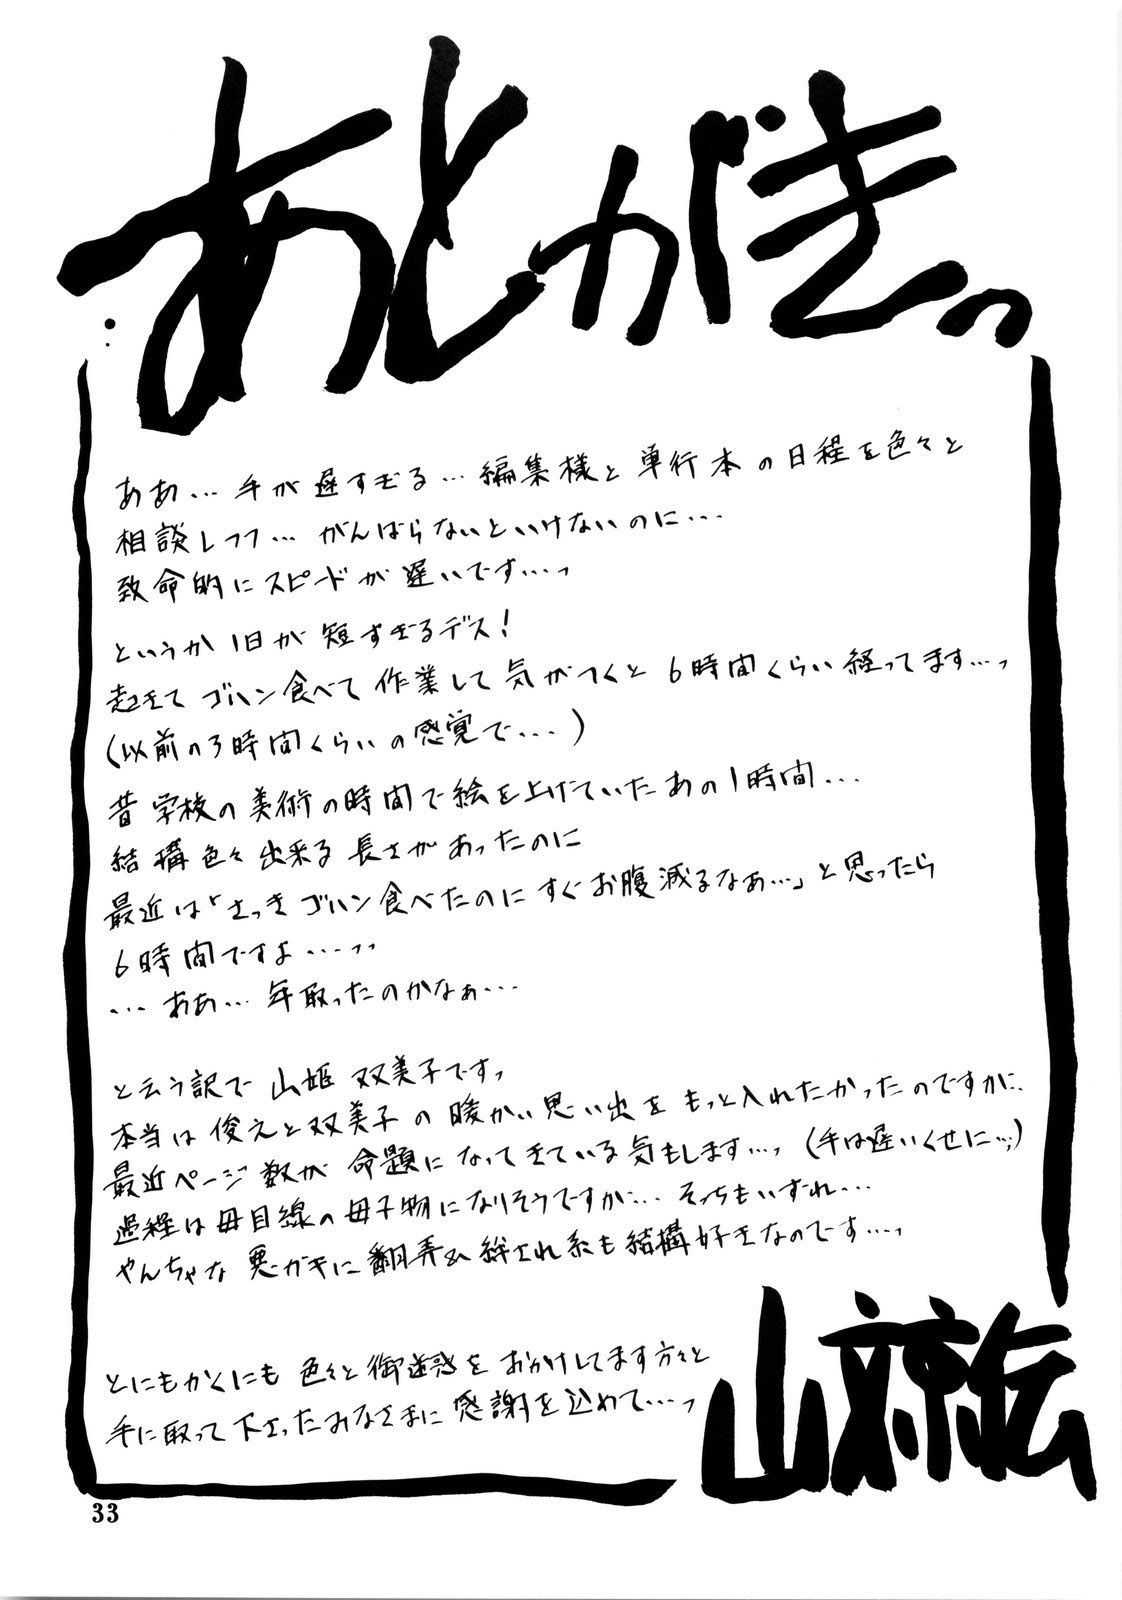 あとがきっ
ああ…手が遅すぎる…編集様と単行本の日程を色々と
相談しつつ…がんばらないといけないのに…
致命的にスピードが遅いです…っ
というか1日が短すぎるデス!
起きてゴハン食べて作業して気がつくと6時間くらい経ってます…っ
(以前の3時間くらいの感覚で…)
昔学校の美術の時間で絵を上げていたあの1時間…
結構色々出来る長さがあったのに
最近は「さっきゴハン食べたのにすぐお腹減るなぁ…」と思ったら
6時間ですよ…っっ
…ああ…年取ったのかなぁ…
と云う訳で山姫双美子ですっ
本当は俊えと双美子の暖かい思い出をもっと入れたかったのですが、
最近ページ数が命題になってきている気もします…っ(手は遅いくせに…;)
過程は母目線の母子物になりそうですが…そっちもいずれ…
やんちゃな悪ガキに翻弄&絆され系も結構好きなのです…っ
とにもかくにも色々と御迷惑をおかけしてます方々と
手に取って下さったみなさまに感謝を込めて…っ
山文京伝
33